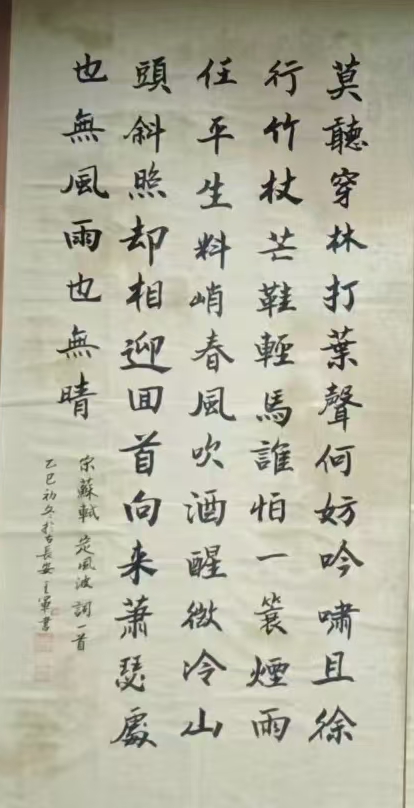 莫聽穿林打葉聲何妨吟嘯且徐
行竹杖芒鞋輕馬誰怕一蓑煙雨
任平生料峭春風吹酒醒微冷山
頭斜照却相迎回首向来蕭瑟處
也無風雨也無晴
宋蘇軾定風波詞一首
乙巳初冬於古長安軍書